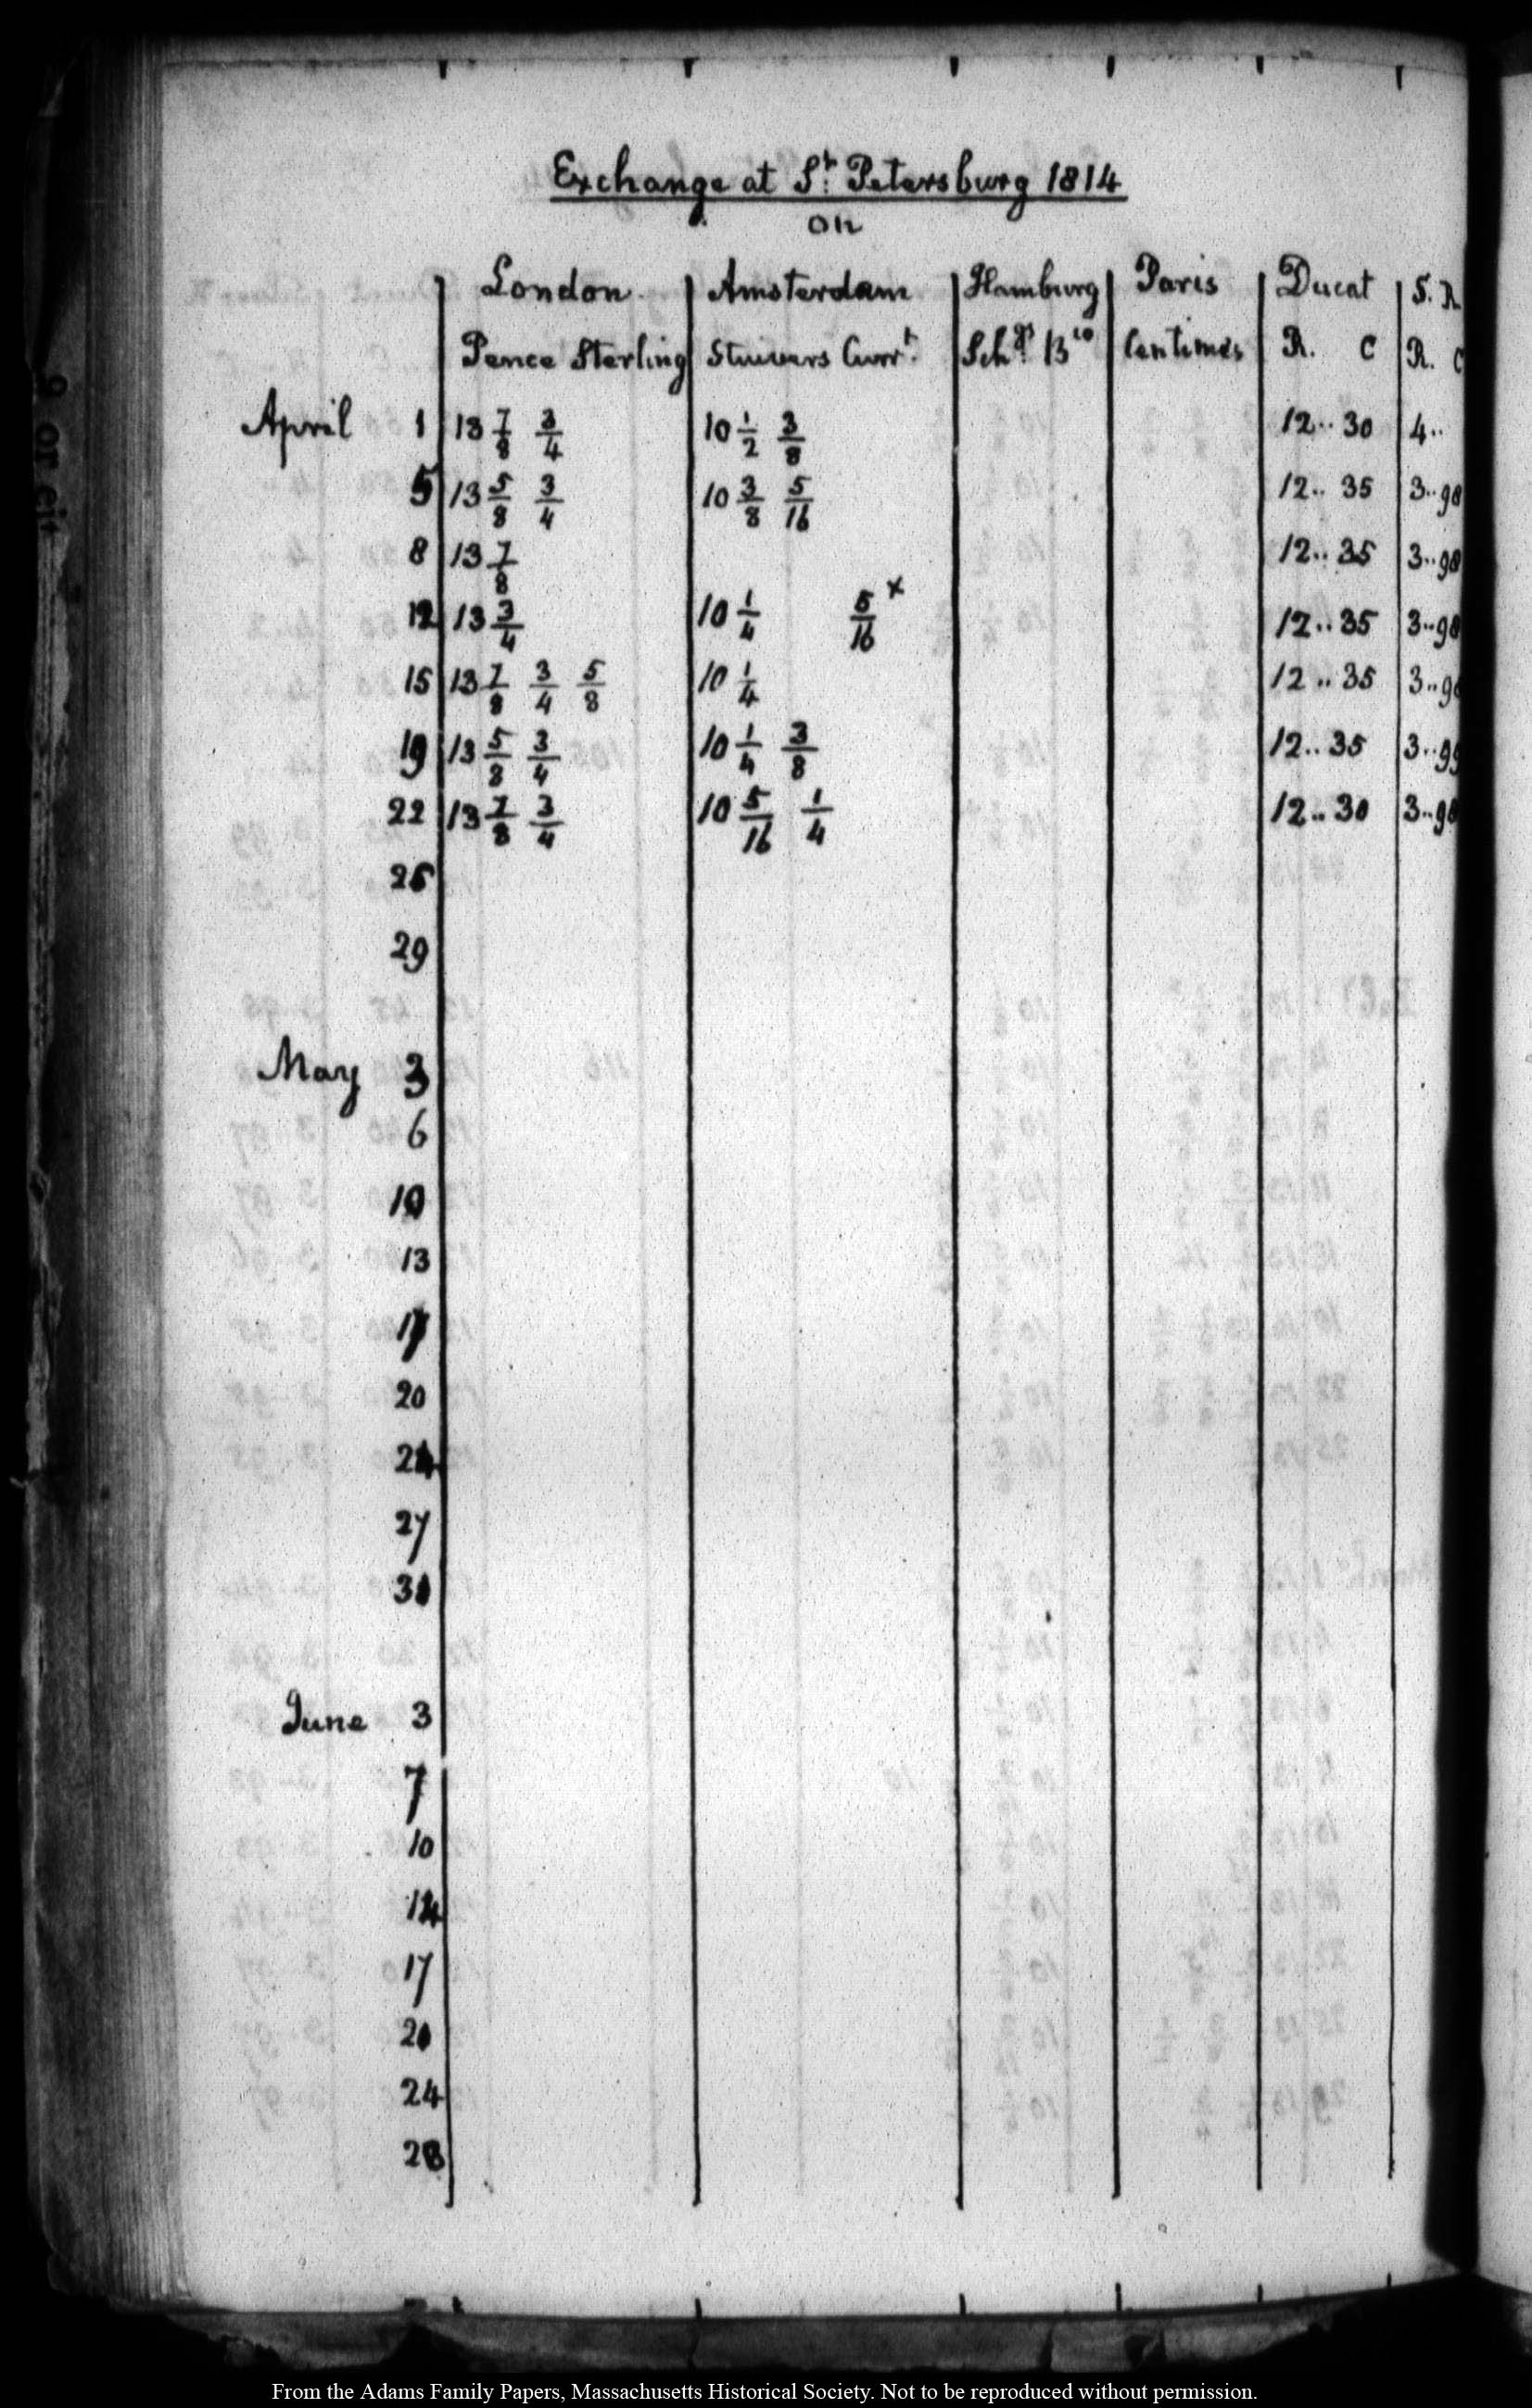 Exchange at St. Petersburg 1814
on
London Amsterdam Hamburg Paris Ducat S. R
Pence Sterling Stuivers Currt. Schgs Bco Centimes R. C R. C
April 1 13 7/8 3/4 10 1/2 3/8 12..30 4..
5 13 5/8 3/4 10 3/8 5/16 12..35 3..98
8 13 7/8 12..35 3..98
12 13 3/4 10 1/4 5/16 x 12..35 3..98
15 13 7/8 3/4 5/8 10 1/4 12..35 3..98
19 13 5/8 3/4 10 1/4 3/8 12..35 3..99
22 13 7/8 3/4 10 5/16 1/4 12..30 3..98
26
29
May 3
6
10
13
17
20
24
27
31
June 3
7
10
14
17
21
24
28
From the Adams Family Papers, Massachusetts Historical Society. Not to be reproduced without permission.